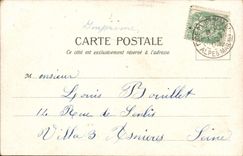 Imprimé
CARTE POSTALE
Ce côté est exclusivement réservé à l'adresse
Monsieur
Louis Bouillet
14 Rue de Senlis
Villa 3 Asnières
Seine
ALPES